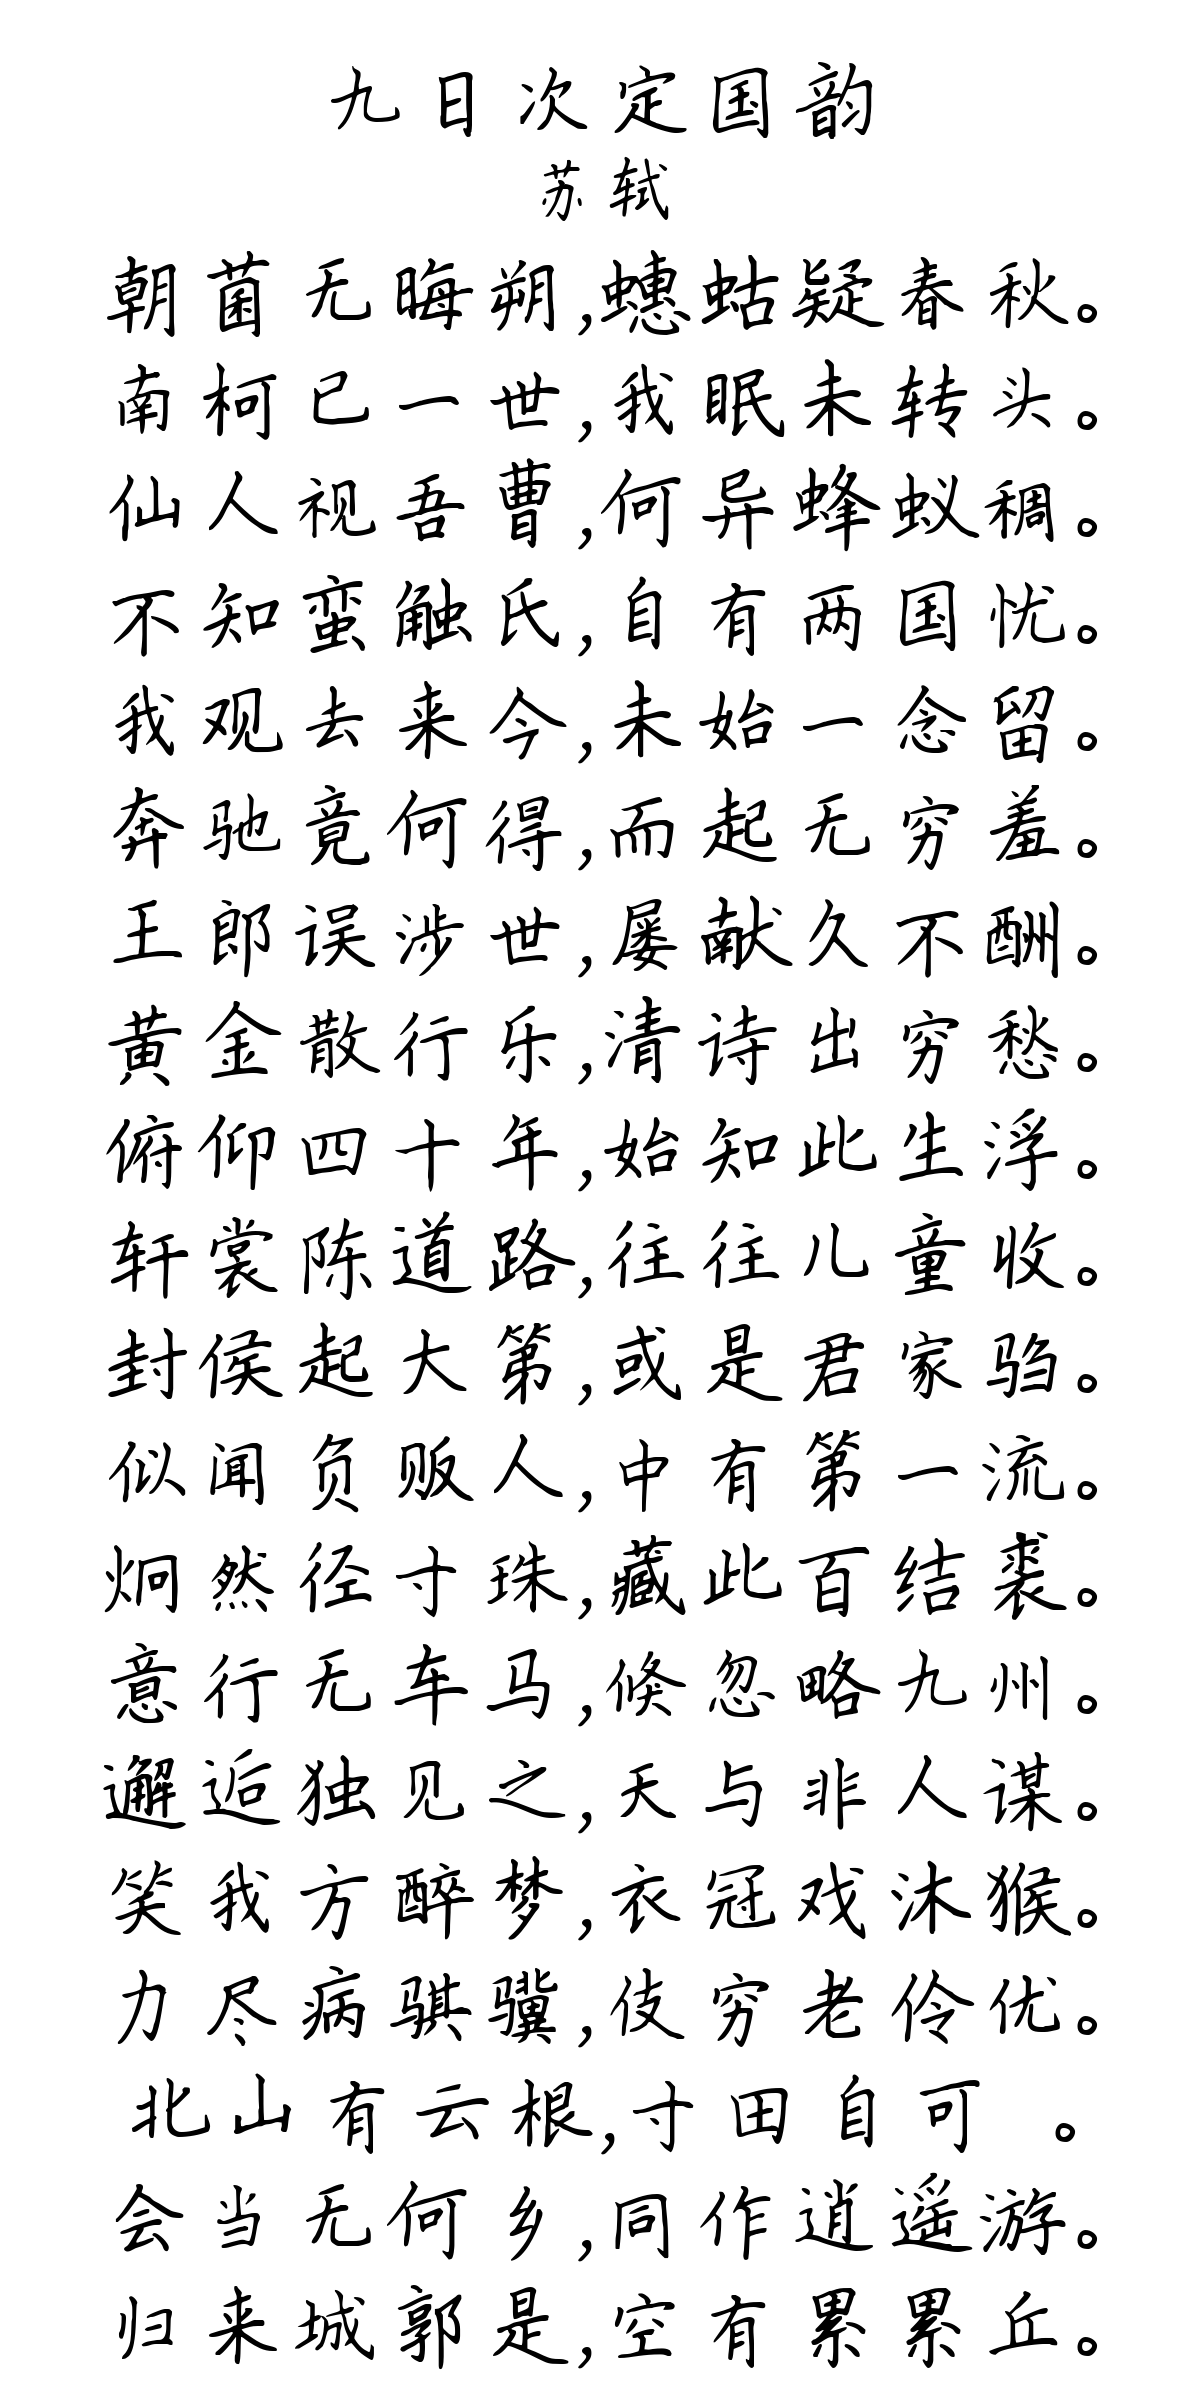 九日次定国韵
苏轼
朝菌无晦朔,蟪蛄疑春秋。
南柯已一世,我眠未转头。
仙人视吾曹,何异蜂蚁稠。
不知蛮触氏,自有两国忧。
我观去来今,未始一念留。
奔驰竟何得,而起无穷羞。
王郎误涉世,屡献久不酬。
黄金散行乐,清诗出穷愁。
俯仰四十年,始知此生浮。
轩裳陈道路,往往儿童收。
封侯起大第,或是君家驺。
似闻负贩人,中有第一流。
炯然径寸珠,藏此百结裘。
意行无车马,倏忽略九州。
邂逅独见之,天与非人谋。
笑我方醉梦,衣冠戏沐猴。
力尽病骐骥,伎穷老伶优。
北山有云根,寸田自可 。
会当无何乡,同作逍遥游。
归来城郭是,空有累累丘。